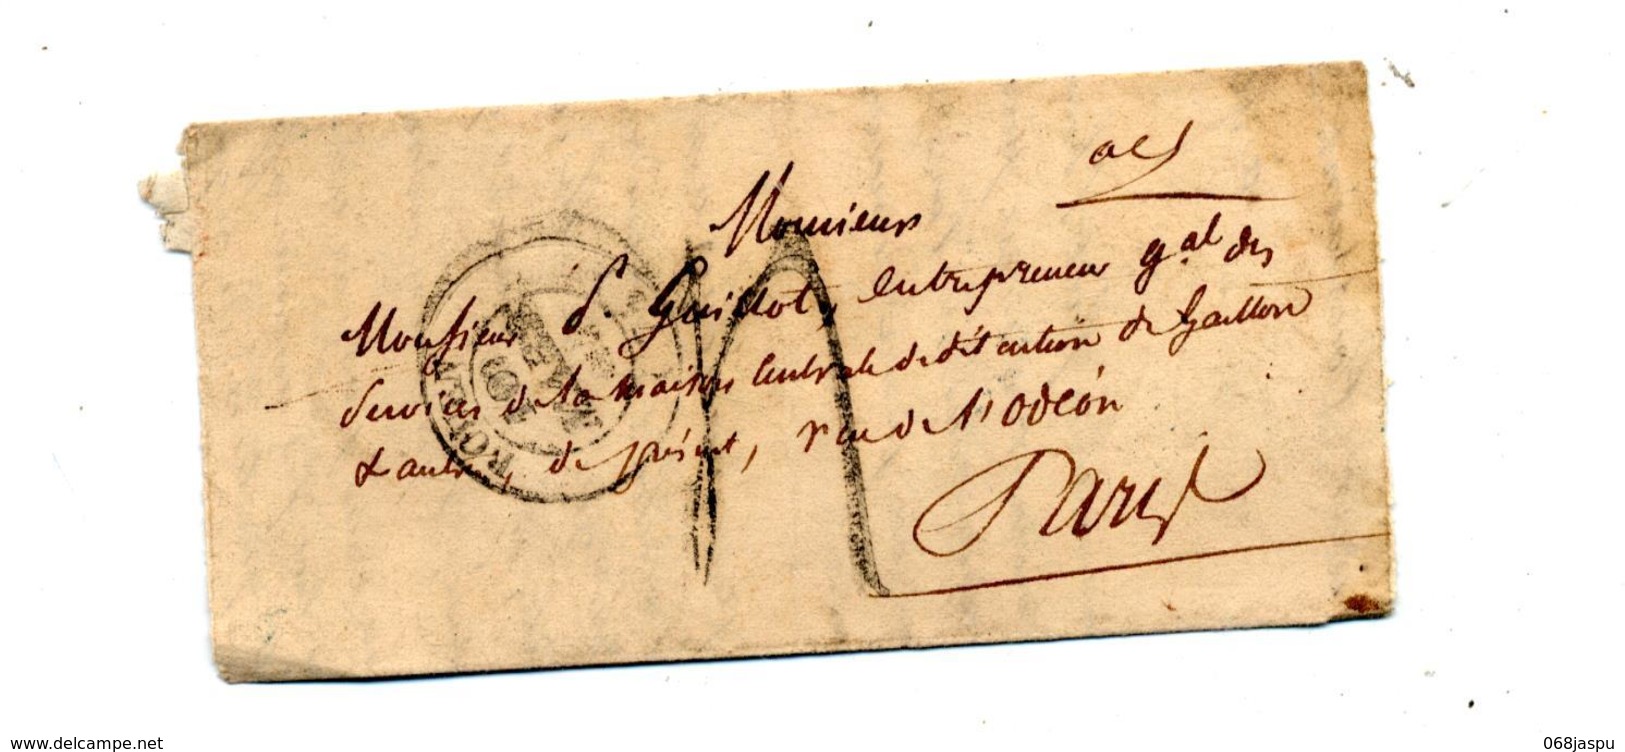 acf
Monsieur
Monsieur S. Guillot, entrepreneur gal des
Services de la maison Centrale de détention de Gaillon
& autres, de présent, rue de l'Odéon
Paris
ROUEN
www.delcampe.net
068jaspu